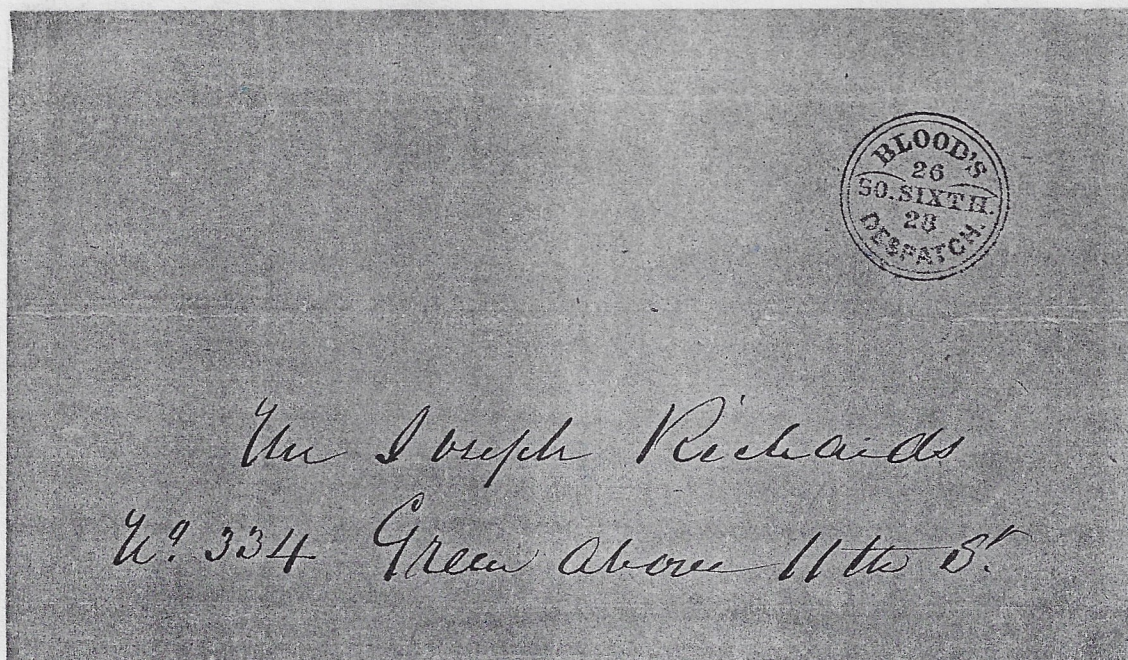 BLOOD'S
26
SO. SIXTH.
28
DESPATCH.
Mr Joseph Richards
No. 334 Green above 11th St.